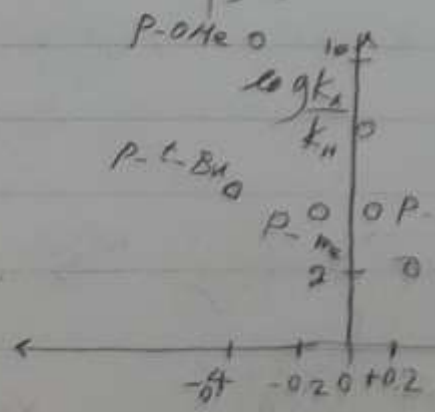 P-OMe
10
log k
k
P-t-Bu
P- P-
me
2
-0.4 -0.2 0 +0.2